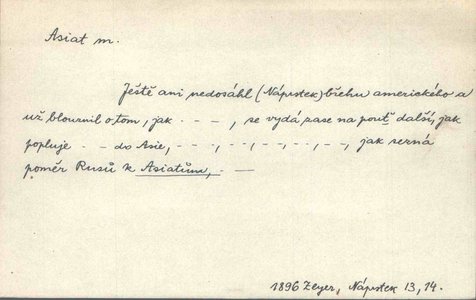 Asiat m.
Ještě ani nedosáhl (Náprstek) břehu amerického a
už blouznil o tom, jak - - -, se vydá zase na pouť další, jak
popluje - - do Asie, - - -, - -, - -, - -, - -, jak sezná
poměr Rusů k Asiatům, - -
1896 Zeyer, Náprstek 13, 14.